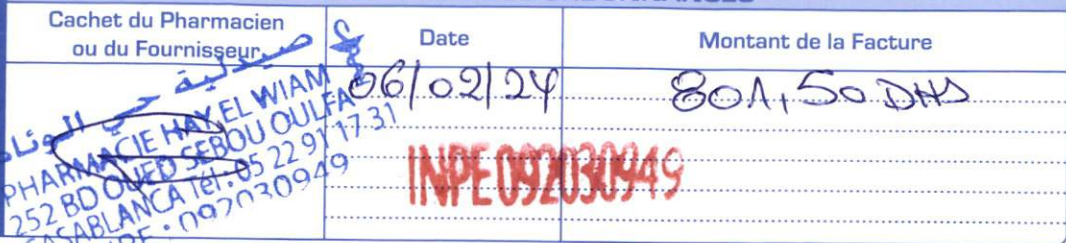 Cachet du Pharmacien
ou du Fournisseur
Date
Montant de la Facture
صيدلية حي الوئام
PHARMACIE HAY EL WIAM
252 BD OUED SEBOU OULFA
CASABLANCA Tél: 05 22 91 17 31
: 092030949
06/02/24
801,50 DHS
INPE092030949